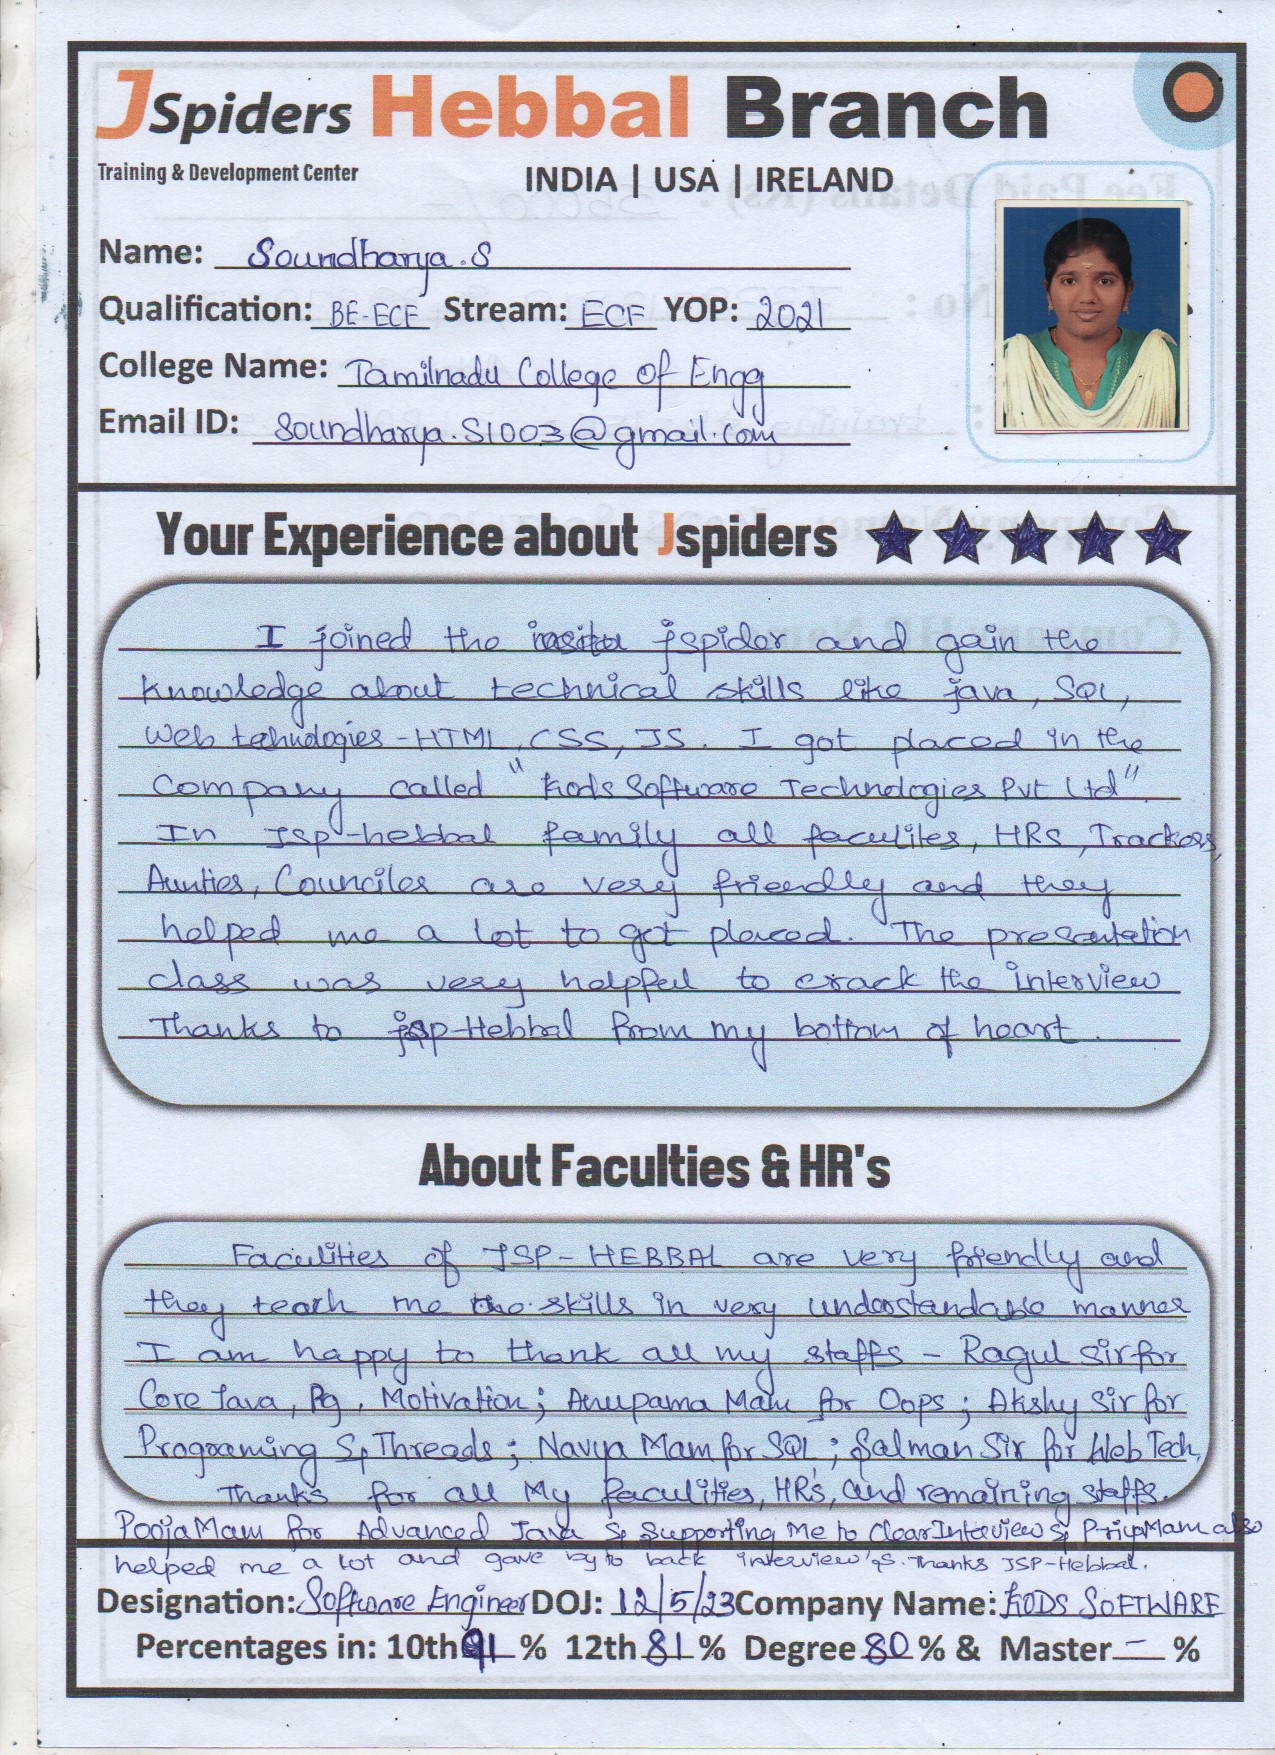 JSpiders Hebbal Branch
Training & Development Center
INDIA | USA | IRELAND
Name: Soundharya.S
Qualification: BE-ECE Stream: ECE YOP: 2021
College Name: Tamilnadu College of Engg
Email ID: Soundharya.S1003@gmail.com
Your Experience about Jspiders
I joined the jspider and gain the
knowledge about technical skills like java, SQL,
Web tehnologies - HTML, CSS, JS. I got placed in the
Company called "Kods Software Technologies Pvt Ltd"
In JSP-hebbal family all faculites, HRs, Trackers,
Aunties, Counciler are very friendly and they
helped me a lot to got placed. The presentation
class was very helpful to crack the interview
Thanks to jsp-Hebbal from my bottom of heart.
About Faculties & HR's
Faculities of JSP-HEBBAL are very friendly and
they teach me the skills in very understandable manner
I am happy to thank all my staffs - Ragul Sir for
Core Java, Pg, Motivation; Anupama Mam for Oops; Akshy Sir for
Programing & Threads; Navya Mam for SQL; Salman Sir for Web Tech,
Thanks for all My faculities, HR's, and remaining staffs.
Pooja Mam for Advanced Java & Supporting Me to Clear Interview & Priya Mam also
helped me a lot and gave to back interview's. Thanks JSP-Hebbal.
Designation: Software Engineer DOJ: 12/5/23 Company Name: KODS SOFTWARE
Percentages in: 10th 91 % 12th 81 % Degree 80 % & Master - %